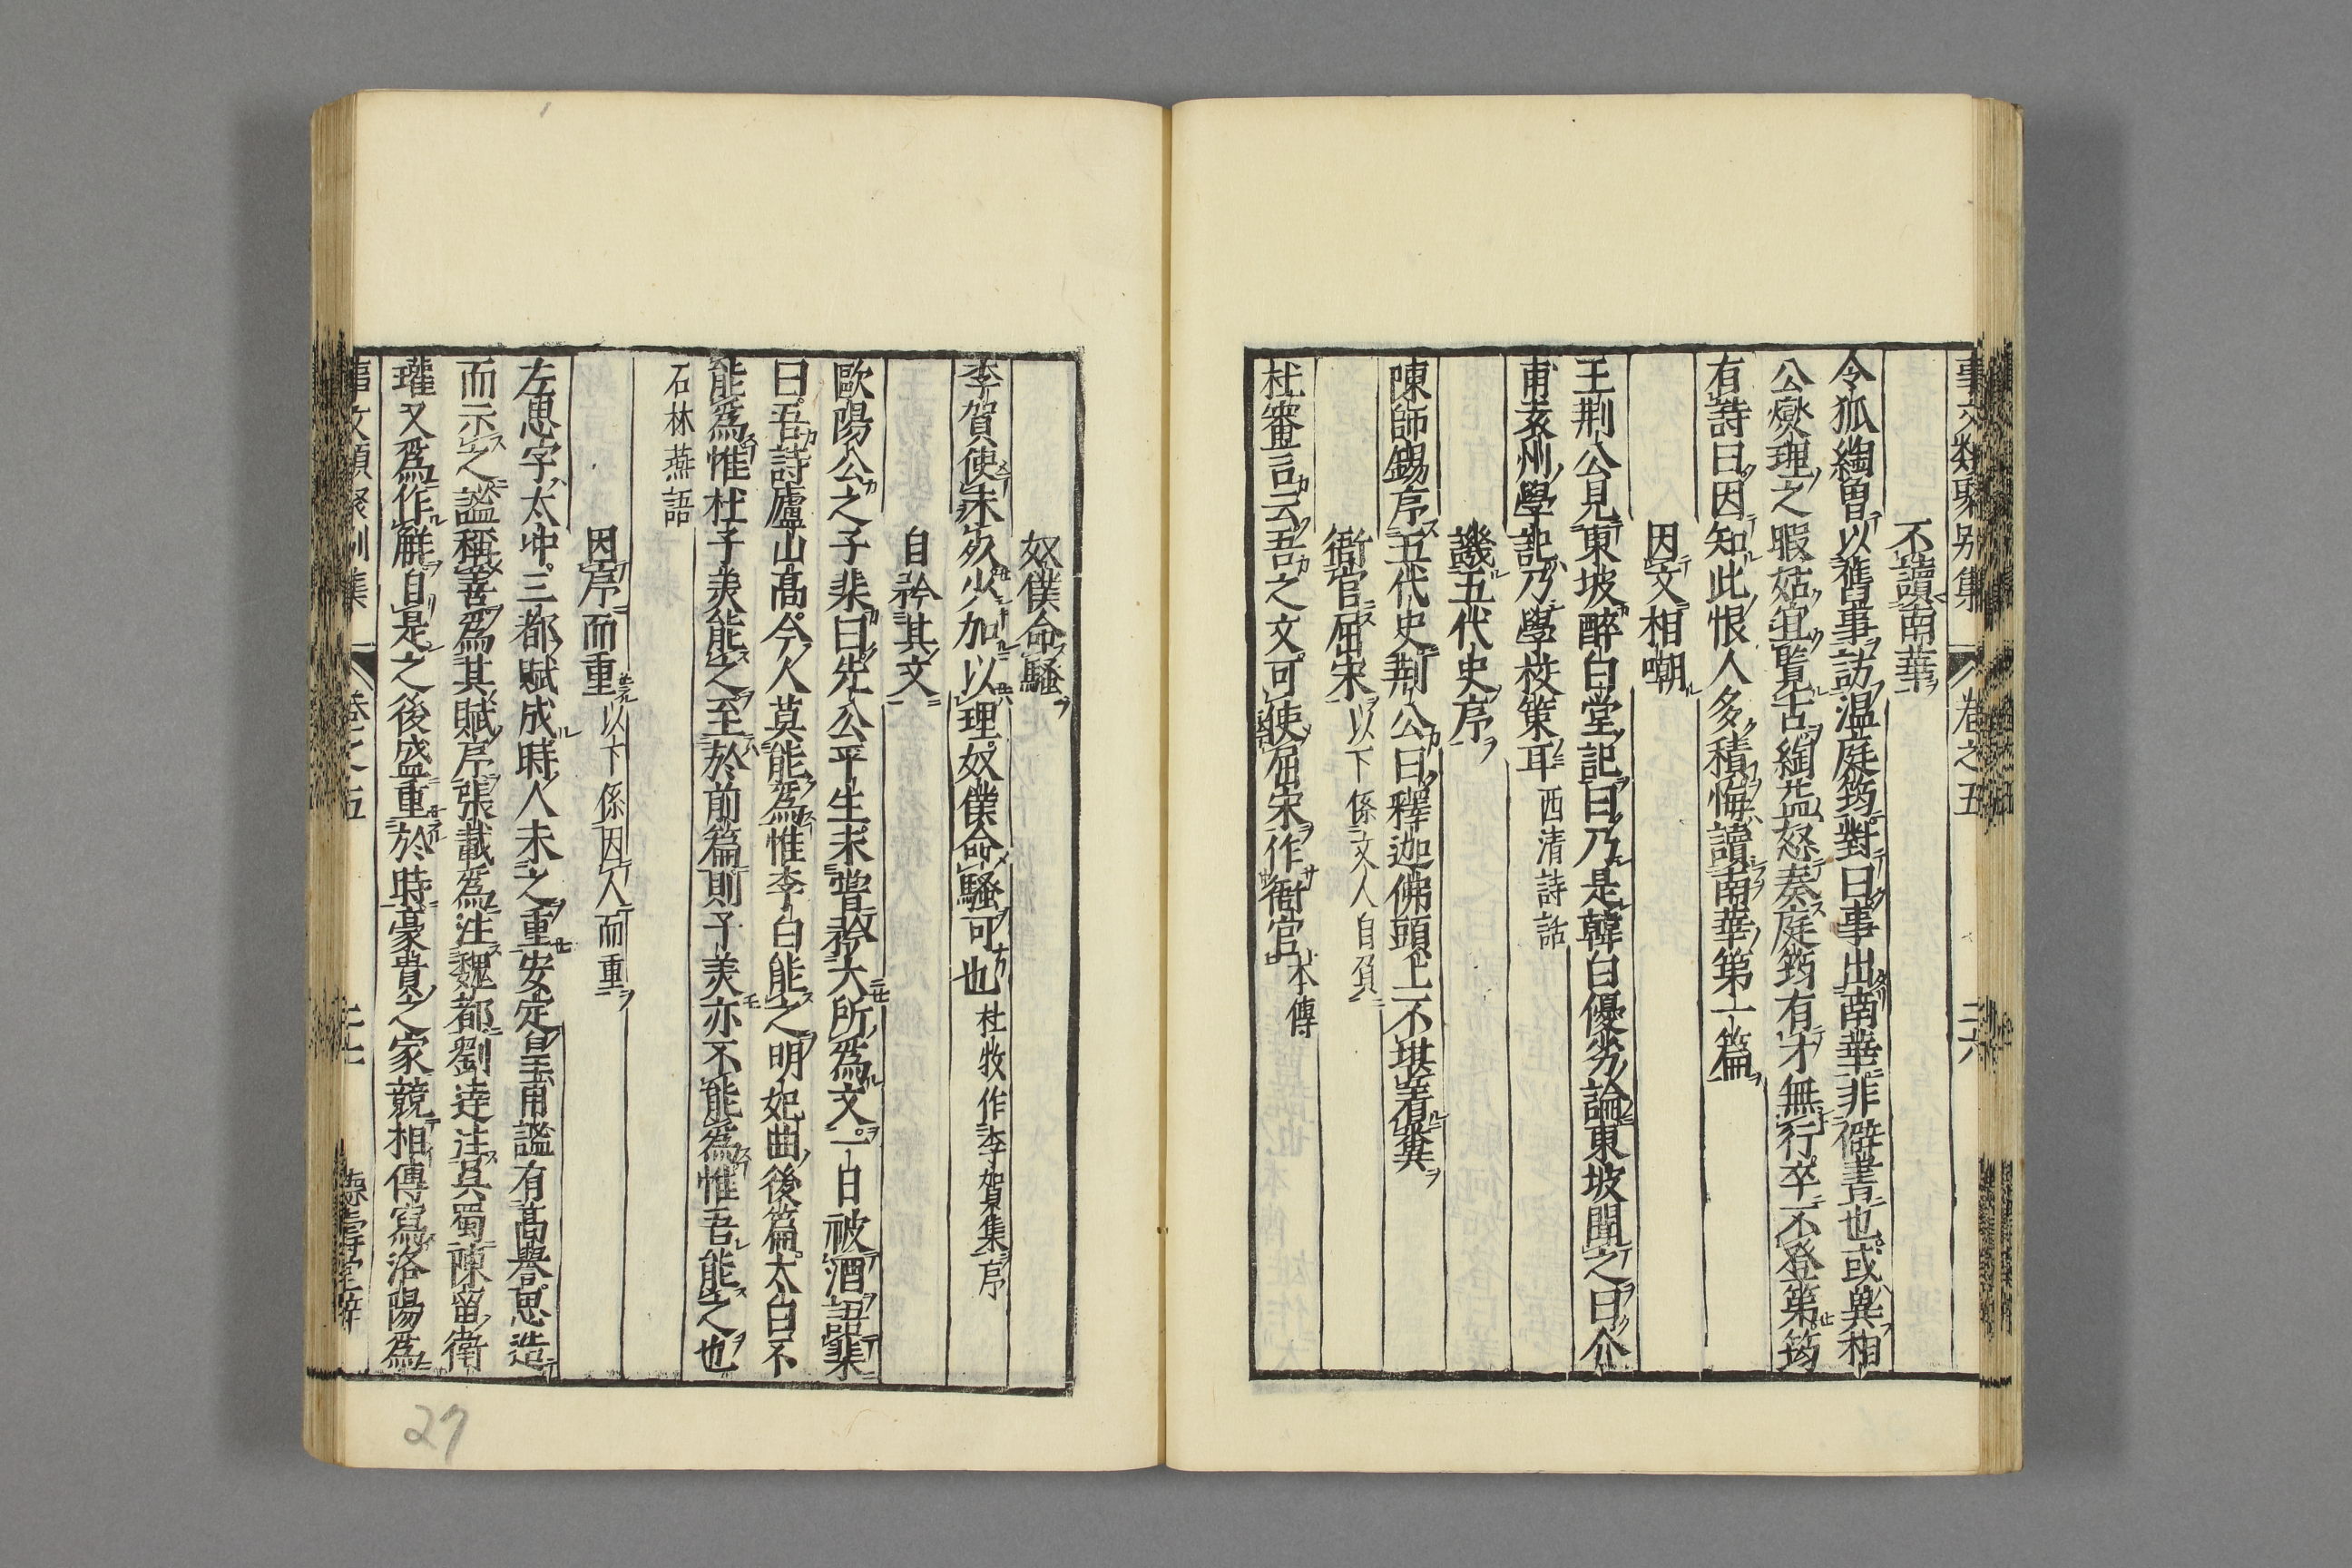 事文類聚別集 卷之五 二六
不讀南華
令狐綯曾以舊事訪溫庭筠對曰事出南華非僻書也或冀相
公燮理之暇姑宜覽古綯益怒奏庭筠有才無行卒不登第筠
有詩曰因知此恨人多積悔讀南華第二篇
因文相嘲
王荆公見東坡醉白堂記曰乃是韓白優劣論東坡聞之曰介
甫䖍州學記乃學校策耳 西清詩話
譏五代史序
陳師錫序五代史荆公曰釋迦佛頭上不堪著糞
衙官屈宋 以下係文人自負
杜審言云吾之文可使屈宋作衙官 本傳
奴僕命騷
李賀使未死少加以理奴僕命騷可也 杜牧作李賀集序
自矜其文
歐陽公之子棐曰先公平生未嘗矜大所爲文一日被酒語棐
曰吾詩廬山高今人莫能爲惟李白能之明妃曲後篇太白不
能爲惟杜子美能之至於前篇則子美亦不能爲惟吾能之也
石林燕語
因序而重 以下係因人而重
左思字太冲三都賦成時人未之重安定皇甫謐有高譽思造
而示之謐稱善爲其賦序張載爲注魏都劉逵注其蜀陳留衛
瓘又爲作解自是之後盛重於時豪貴之家競相傳寫洛陽爲
事文類聚別集 卷之五 二七
27